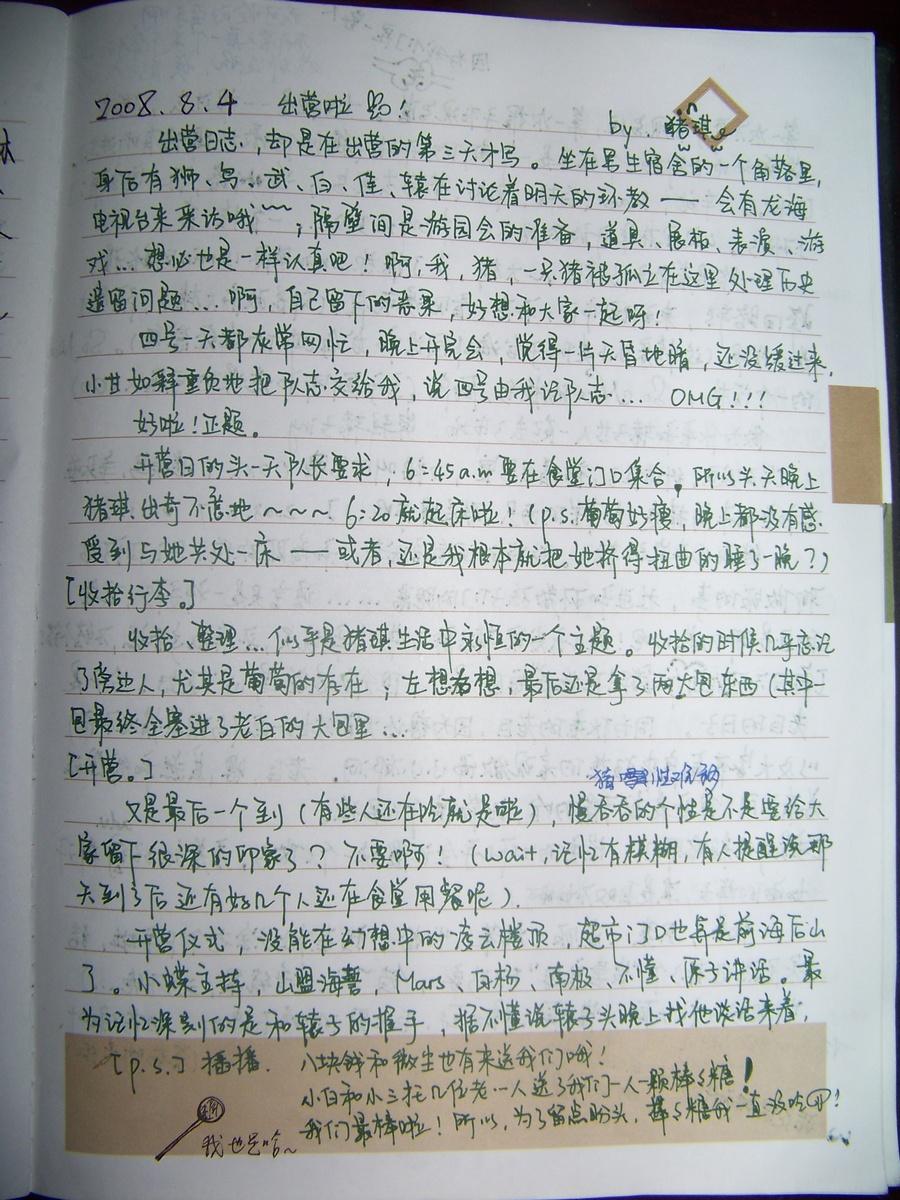 2008.8.4 出营啦
by. 猪琪
出营日志,却是在出营的第三天才写。坐在男生宿舍的一个角落里,
身后有狮、鸟、武、白、佳、辕在讨论着明天的环教——会有龙海
电视台来采访哦~~;隔壁间是游园会的准备,道具、展板、表演、游
戏…想必也是一样认真吧!啊,我,猪,一只猪被孤立在这里处理历史
遗留问题…啊,自己留下的恶果,好想和大家一起呀!
四号一天都灰常网忙,晚上开完会,觉得一片天昏地暗,还没缓过来,
小甘如释重负地把队志交给我,说四号由我记队志… OMG!!!
好啦!正题。
开营日的头一天队长要求,6:45a.m要在食堂门口集合,所以头天晚上
猪琪出奇不意地~~~6:20就起床啦!(p.s.葡萄好瘦,晚上都没有感
受到与她共处一床——或者,还是我根本就把她挤得扭曲的睡了一晚?)
[收拾行李。]
收拾、整理…似乎是猪琪生活中永恒的一个主题。收拾的时候几乎忘记
了旁边人,尤其是葡萄的存在;左想右想,最后还是拿了两大包东西(其中
包最终全塞进了老白的大包里…
[开营。]
猪
又是最后一个到(有些人还在吃就是啦),慢吞吞的个性是不是要给大
家留下很深的印象了?不要啊!(wait,记忆有模糊,有人提醒说那
天到了后还有好几个人还在食堂用餐呢)
开营仪式,没能在幻想中的凌云楼顶,超市门口也算是前海后山
了。小蝶主持,山盟海誓,Mars、白杨、南极、不懂、陈子讲话。最
为记忆深刻的是和辕子的握手,据不懂说辕子头晚上找他谈话来着;
[p.s.]插播. 八块钱和微尘也有来送我们哦!
小白和小三托几位老一人送了我们一人一颗棒棒糖!
我们最棒啦!所以,为了留点盼头,棒棒糖我一直没吃!
我也是哈~